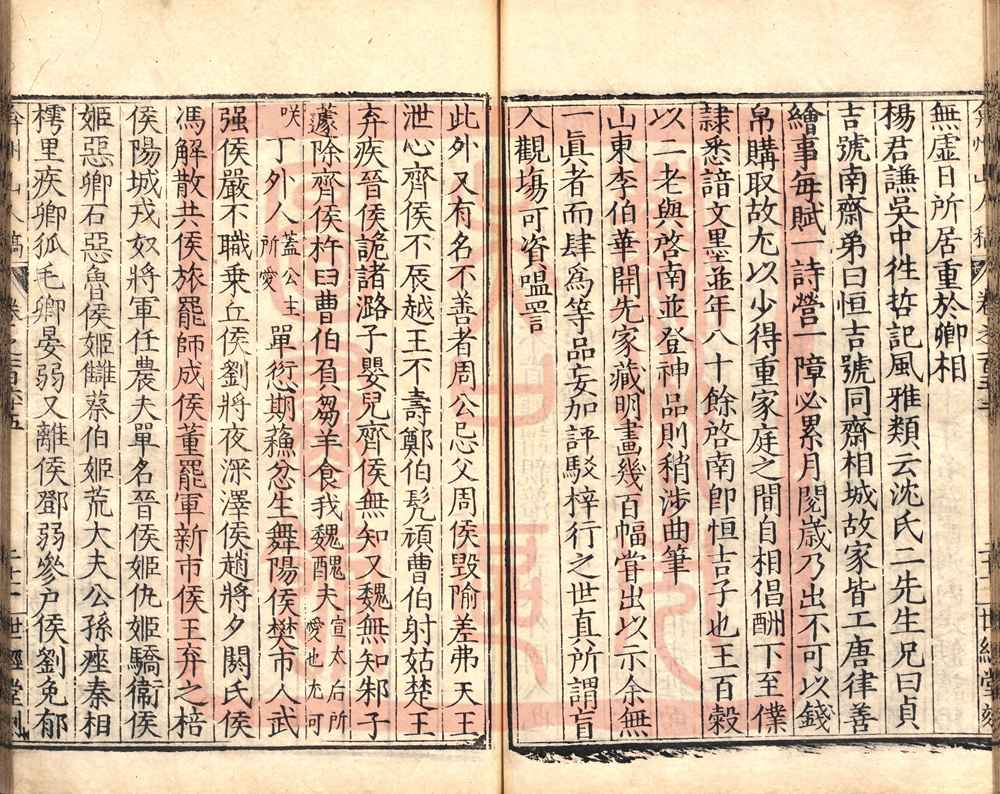 無虛日所居重於卿相
楊君謙吳中徃哲記風雅類云沈氏二先生兄曰貞
吉號南齋弟曰恒吉號同齋相城故家皆工唐律善
繪事每賦一詩營一障必累月閱歲乃出不可以錢
帛購取故尢以少得重家庭之間自相倡酬下至僕
隷悉諳文墨並年八十餘啓南卽恒吉子也王百穀
以二老與啓南並登神品則稍涉曲筆
山東李伯華開先家藏明畫幾百幅甞出以示余無
一眞者而肆爲等品妄加評駁梓行之世真所謂盲
人觀塲可資嗢噱
世經堂刻
此外又有名不善者周公忌父周侯毀隃差弗天王
泄心齊侯不辰越王不壽鄭伯髠頑曹伯射姑楚王
弃疾晉侯詭諸潞子嬰兒齊侯無知又魏無知邾子
蘧除齊侯杵臼曹伯負芻羊食我魏醜夫宣太后所愛也尢可
咲丁外人蓋公主所愛單愆期蘓忿生舞陽侯樊市人武
强侯嚴不職乗丘侯劉將夜深澤侯趙將夕閼氏侯
馮解散共侯旅罷師成侯董罷軍新市侯王弃之棓
侯陽城戎奴將軍任農夫單名晉侯姬仇姬驕衞侯
姬惡卿石惡魯侯姬讎蔡伯姬荒大夫公孫痤秦相
樗里疾卿狐毛卿晏弱又離侯鄧弱參户侯劉免郁
弇州山人稿
二十一
世經堂刻